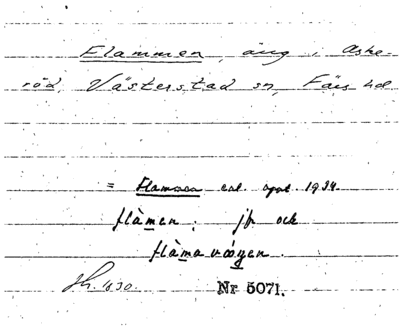 Flammen, äng i Aske-
röd, Västerstad sn, Färs hd
= Flamman enl. uppt. 1934.
flàmen; jfr och
flàma vägen.
Jh. 1630. Nr 5071.